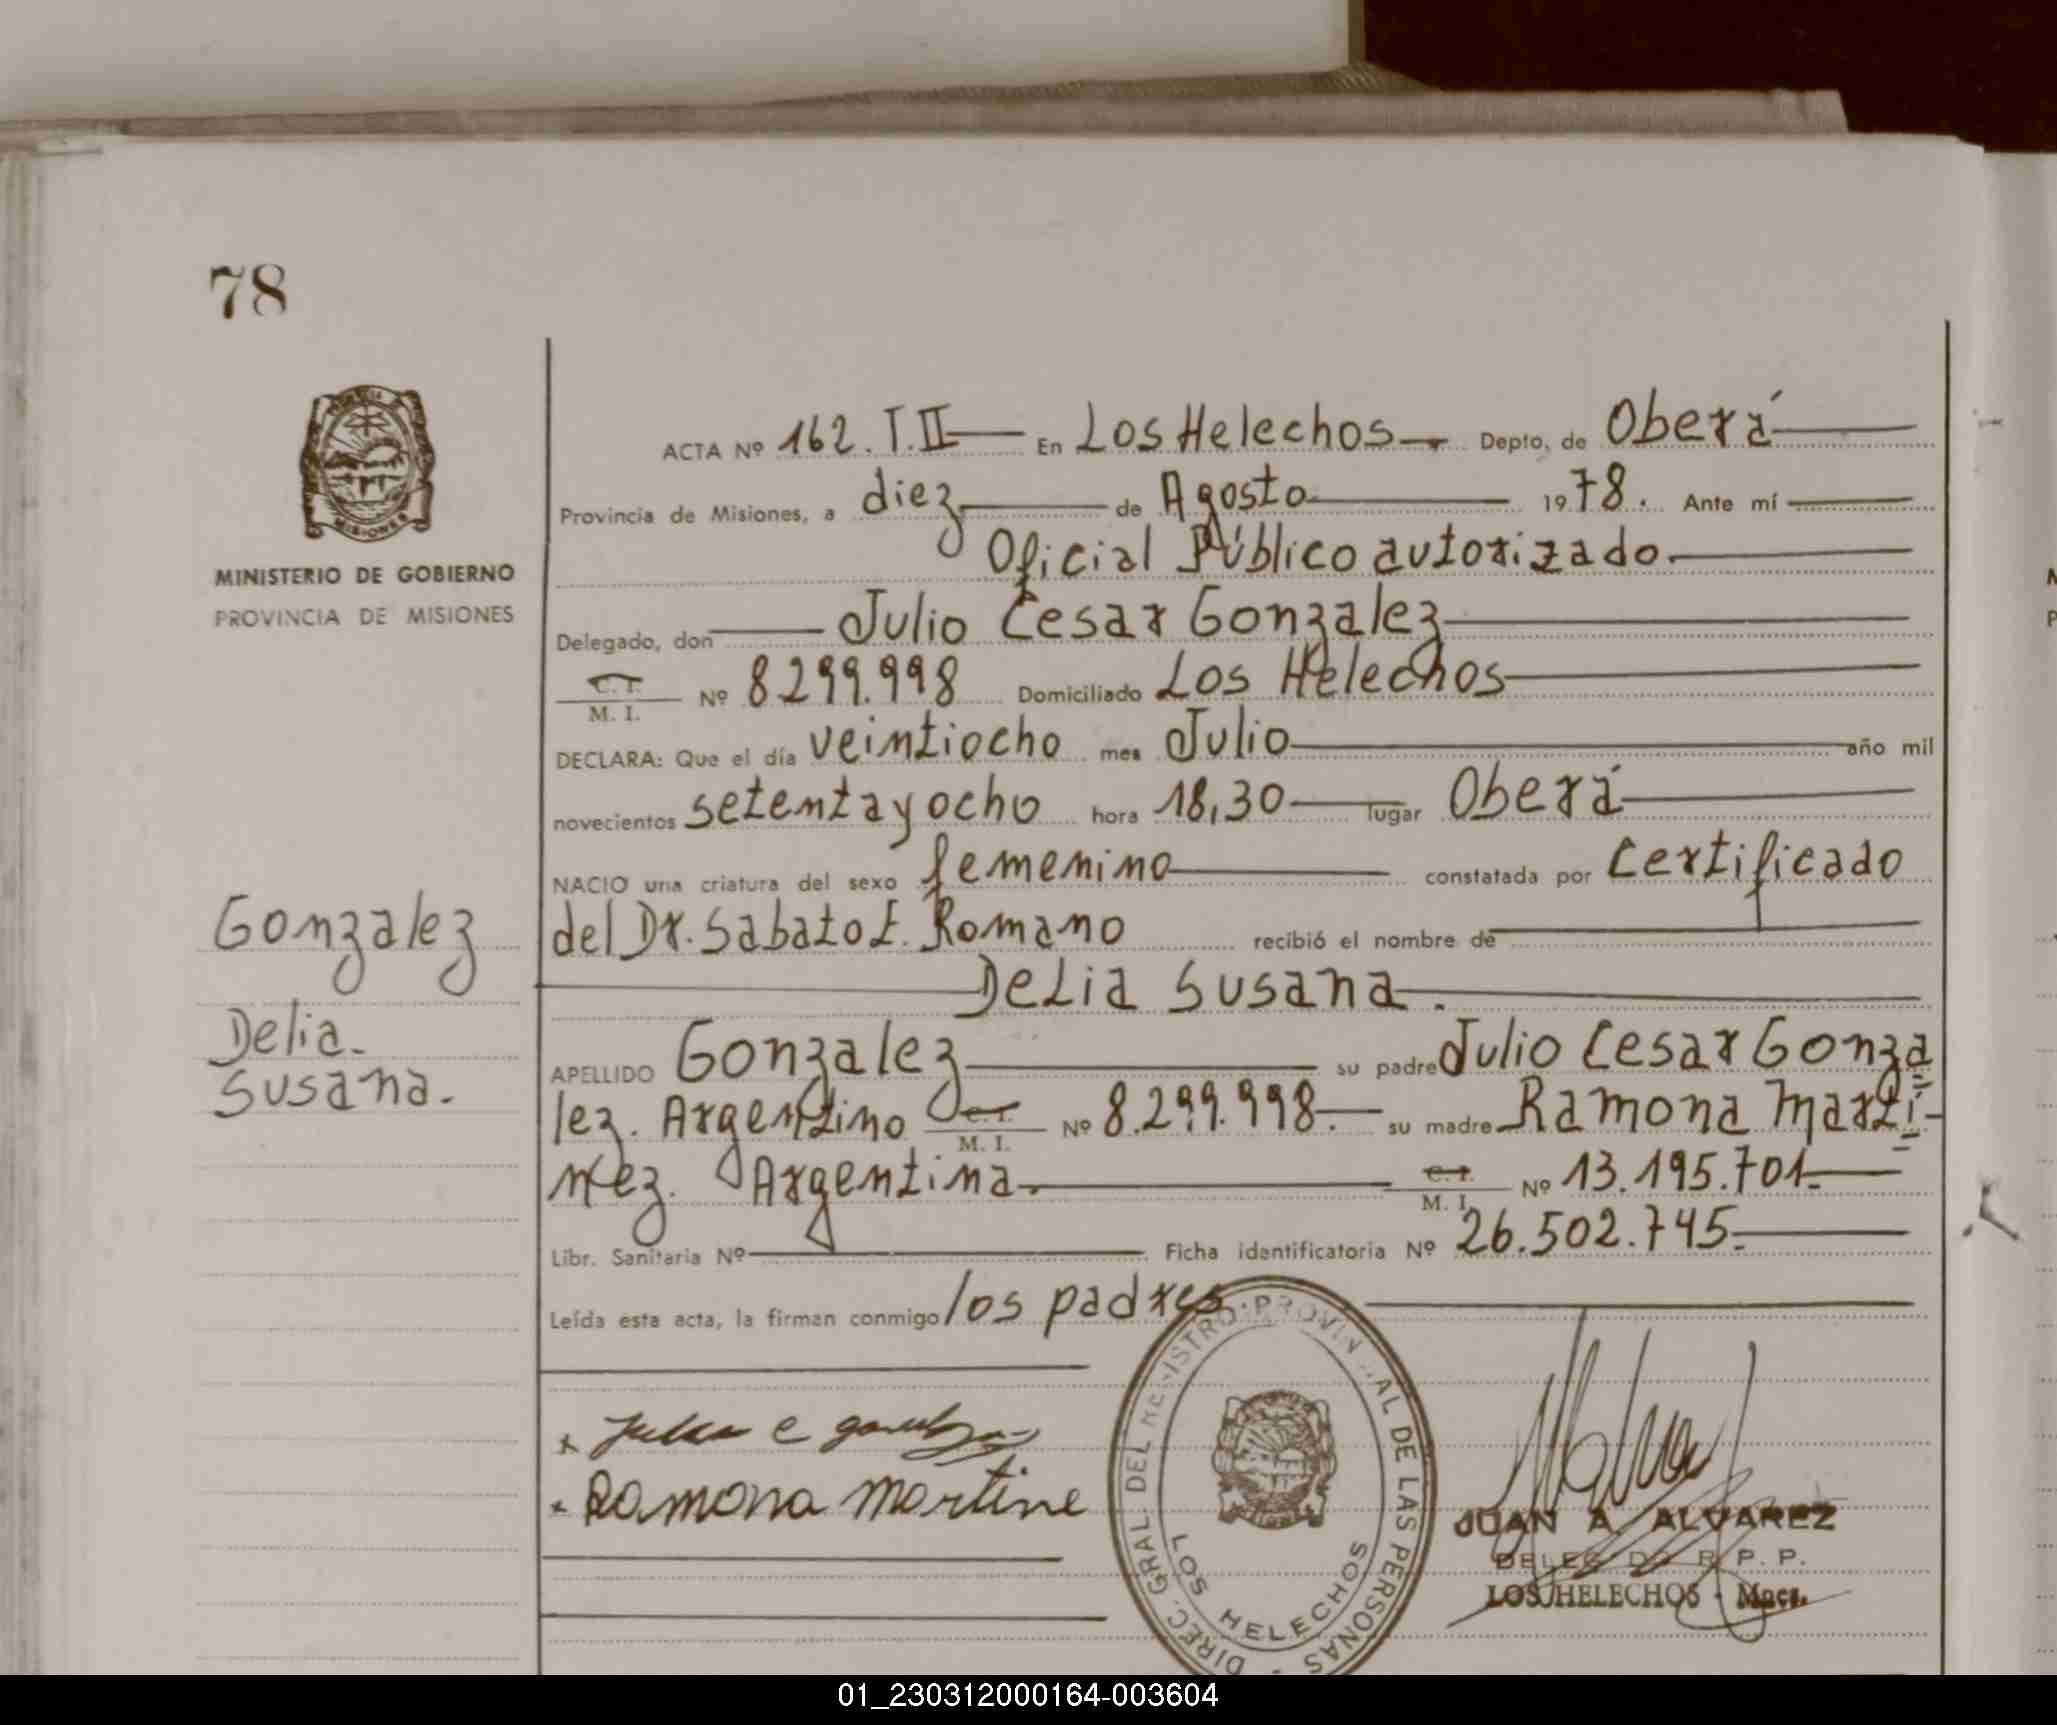 78
MISIONES
MINISTERIO DE GOBIERNO
PROVINCIA DE MISIONES
Gonzalez
Delia.
Susana.
ACTA Nº 162. T. II En Los Helechos Depto, de Oberá
Provincia de Misiones, a diez de Agosto 1978. Ante mí
Oficial Público autorizado.
Delegado, don Julio Cesar Gonzalez
C. I.
M. I. Nº 8299.998 Domiciliado Los Helechos
DECLARA: Que el día veintiocho mes Julio año mil
novecientos setenta y ocho hora 18,30 lugar Oberá
NACIO una criatura del sexo femenino constatada por Certificado
del Dr. Sabato E. Romano recibió el nombre de
Delia Susana.
APELLIDO Gonzalez su padre Julio Cesar Gonza
lez. Argentino C. I. M. I. Nº 8.299.998. su madre Ramona Martí
nez. Argentina. C. I. M. I. Nº 13.195.701.
Libr. Sanitaria Nº Ficha identificatoria Nº 26.502.745.
Leída esta acta, la firman conmigo los padres
Ramona Martine
DIREC. GRAL. DEL REGISTRO PROVINCIAL DE LAS PERSONAS
LOS HELECHOS
JUAN A. ALVAREZ
DELEGADO R. P. P.
LOS HELECHOS - Mnes.
01_230312000164-003604